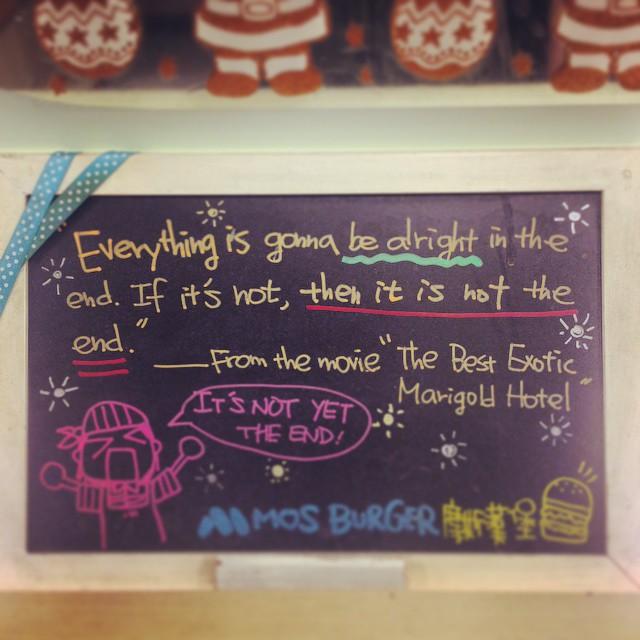 Everything is gonna be alright in the
end. If it's not, then it is not the
end."
—From the movie "The Best Exotic
Marigold Hotel"
IT'S NOT YET
THE END!
MOS BURGER